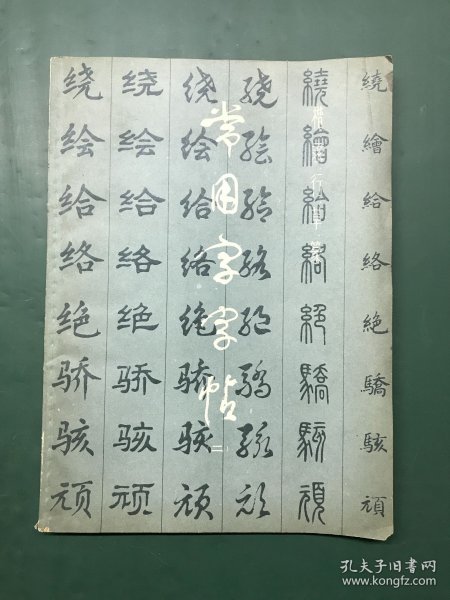 常用字字帖
(二)
绕绘给络绝骄骇顽
绕绘给络绝骄骇顽
绕绘给络绝骄骇顽
绕绘给络绝骄骇顽
繞繪給絡絶驕駭頑
繞繪給絡絶驕駭頑
孔夫子旧书网
www.kongfz.com